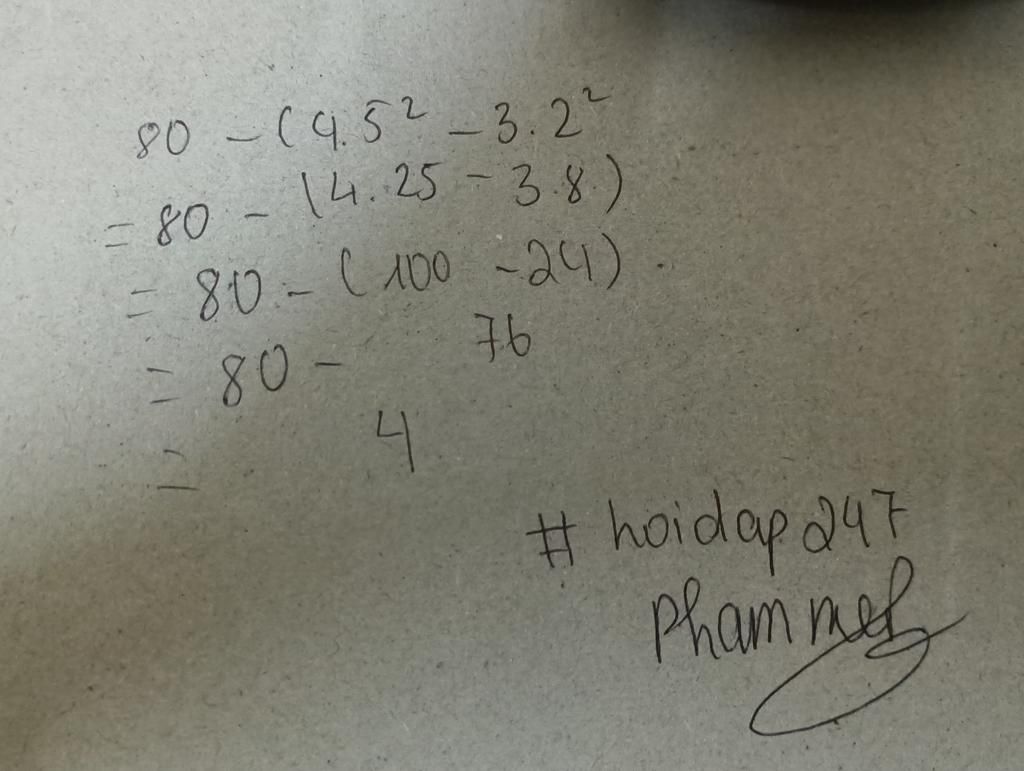 80 - (4.5² - 3.2²
= 80 - (4.25 - 3.8)
= 80 - (100 - 24)
= 80 - 76
= 4
# hoidap247